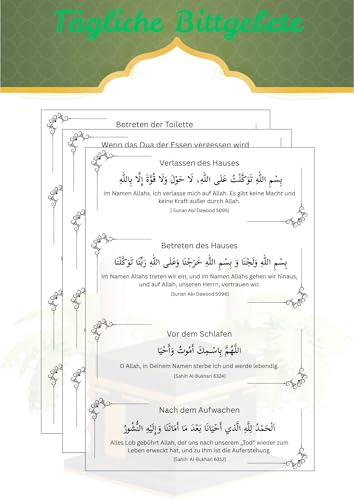 Tägliche Bittgebete
Betreten der Toilette
Wenn das Dua der Essen vergessen wird
Verlassen des Hauses
بِسْمِ اللَّهِ تَوَكَّلْتُ عَلَى اللَّهِ، لَا حَوْلَ وَلَا قُوَّةَ إِلَّا بِاللَّهِ
im Namen Allahs, Ich verlasse mich auf Allah. Es gibt keine Macht und
keine Kraft außer durch Allah.
[ Sunan Abi Dawood 5095]
Betreten des Hauses
بِسْمِ اللَّهِ وَلَجْنَا وَ بِسْمِ اللَّهِ خَرَجْنَا وَعَلَى اللَّهِ رَبِّنَا تَوَكَّلْنَا
im Namen Allahs treten wir ein, und im Namen Allahs gehen wir hinaus,
und auf Allah, unseren Herrn, vertrauen wir.
[Sunan Abi Dawood 5096]
Vor dem Schlafen
اللَّهُمَّ بِاسْمِكَ أَمُوتُ وَأَحْيَا
O Allah, in Deinem Namen sterbe ich und werde lebendig.
[Sahih Al-Bukhari 6324]
Nach dem Aufwachen
الْحَمْدُ لِلَّهِ الَّذِي أَحْيَانَا بَعْدَ مَا أَمَاتَنَا وَإِلَيْهِ النُّشُورُ
Alles Lob gebührt Allah, der uns nach unserem „Tod“ wieder zum
Leben erweckt hat, und zu Ihm ist die Auferstehung.
[Sahih Al-Bukhari 6312]